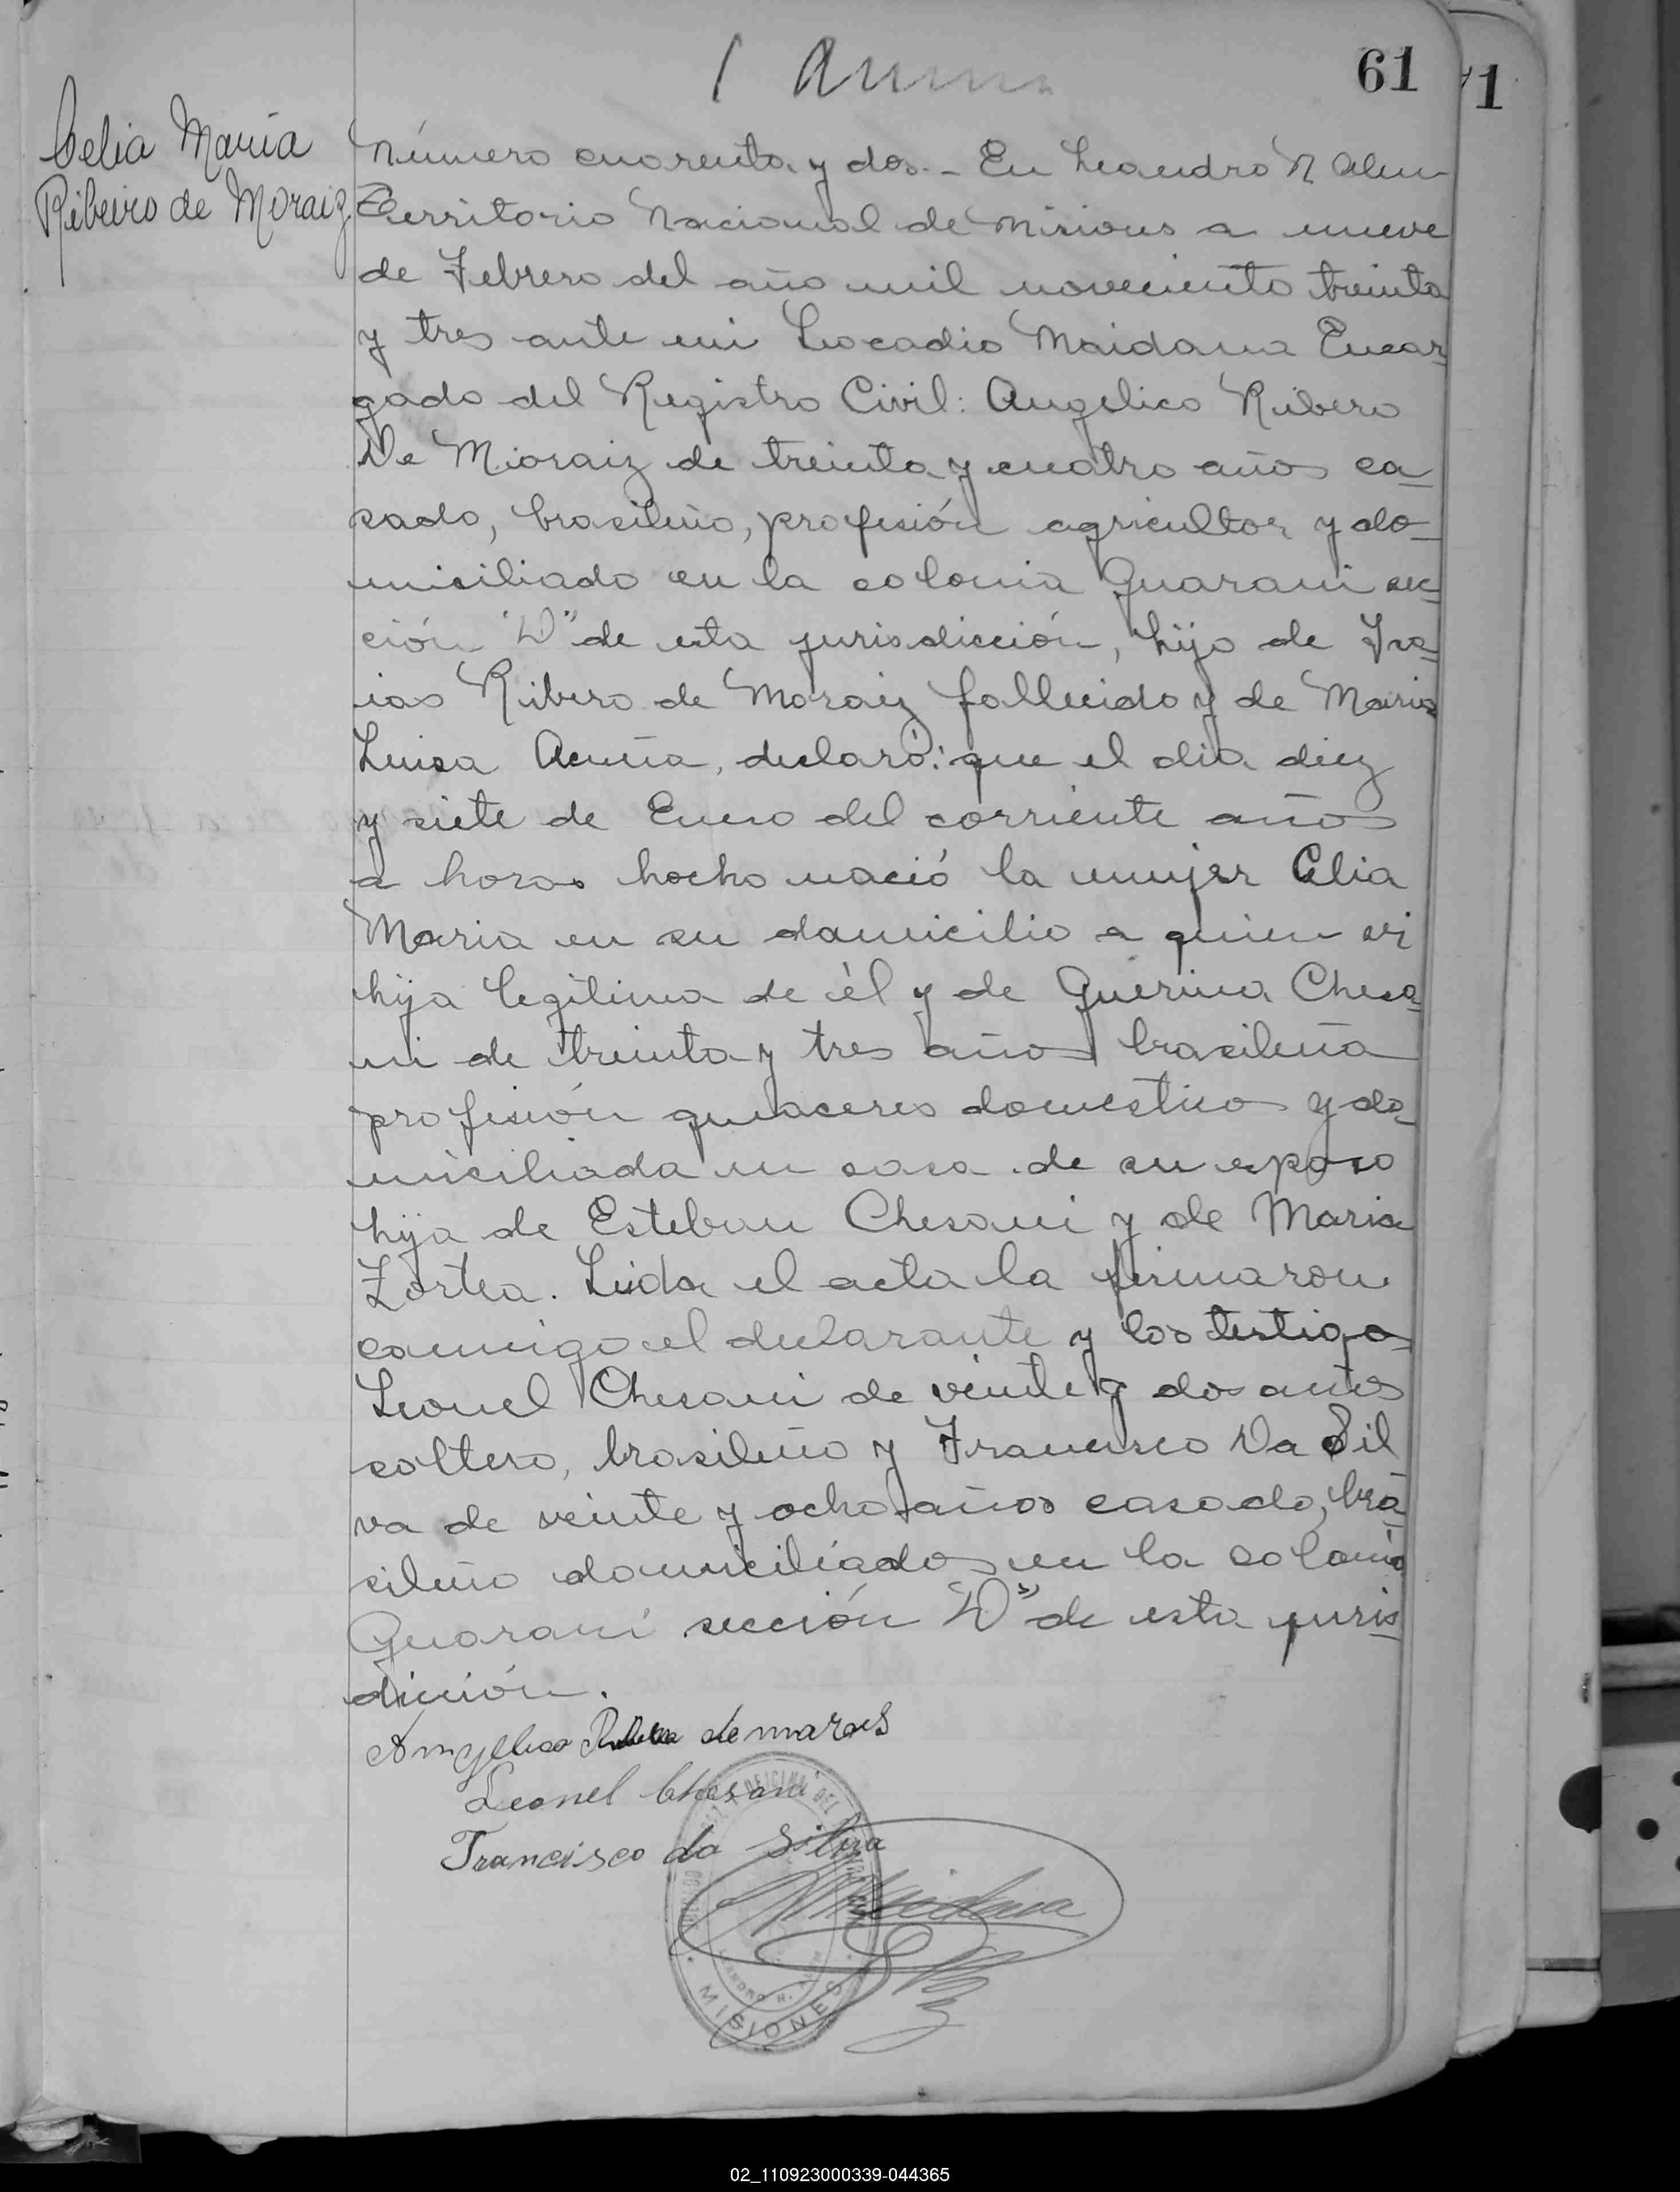 61
71
Celia María
Ribeiro de Moraiz
Número cuarenta y dos.- En Leandro N Alem
Territorio Nacional de Misiones a nueve
de Febrero del año mil noveciento treinta
y tres ante mi Leocadio Maidana Encar-
gado del Registro Civil: Angelico Ribero
De Mioraiz de treinta y cuatro años ca-
sado, brasileño, profesión agricultor y do-
miciliado en la colonia Guarani sec-
ción "D" de esta jurisdicción, hijo de
Ribero de Moraiz fallecido y de Maria
Luisa Acuña, declaró: que el dia diez
y siete de Enero del corriente años
a horas hocho nació la mujer Celia
Maria en su domicilio a quien
hija legitima de él y de Guerina Chesa-
ni de treinta y tres años brasileña
profesión quehaceres domestico y do-
miciliada en casa de su esposo
hija de Esteban Chesani y de Maria
Zortea. Leida el acta la firmaron
conmigo el declarante y los testigos
Leonel Chesani de veinte y dos años
soltero, brasileño y Francisco Da Sil
va de veinte y ocho años casado, bra-
sileño domiciliados en la colonia
Guaraní sección "D" de esta juris-
dicción.
Amgelico de maraes
Leonel Chesani
Francisco da Silva
Maidana
OFICINA DEL
MISIONES
02_110923000339-044365